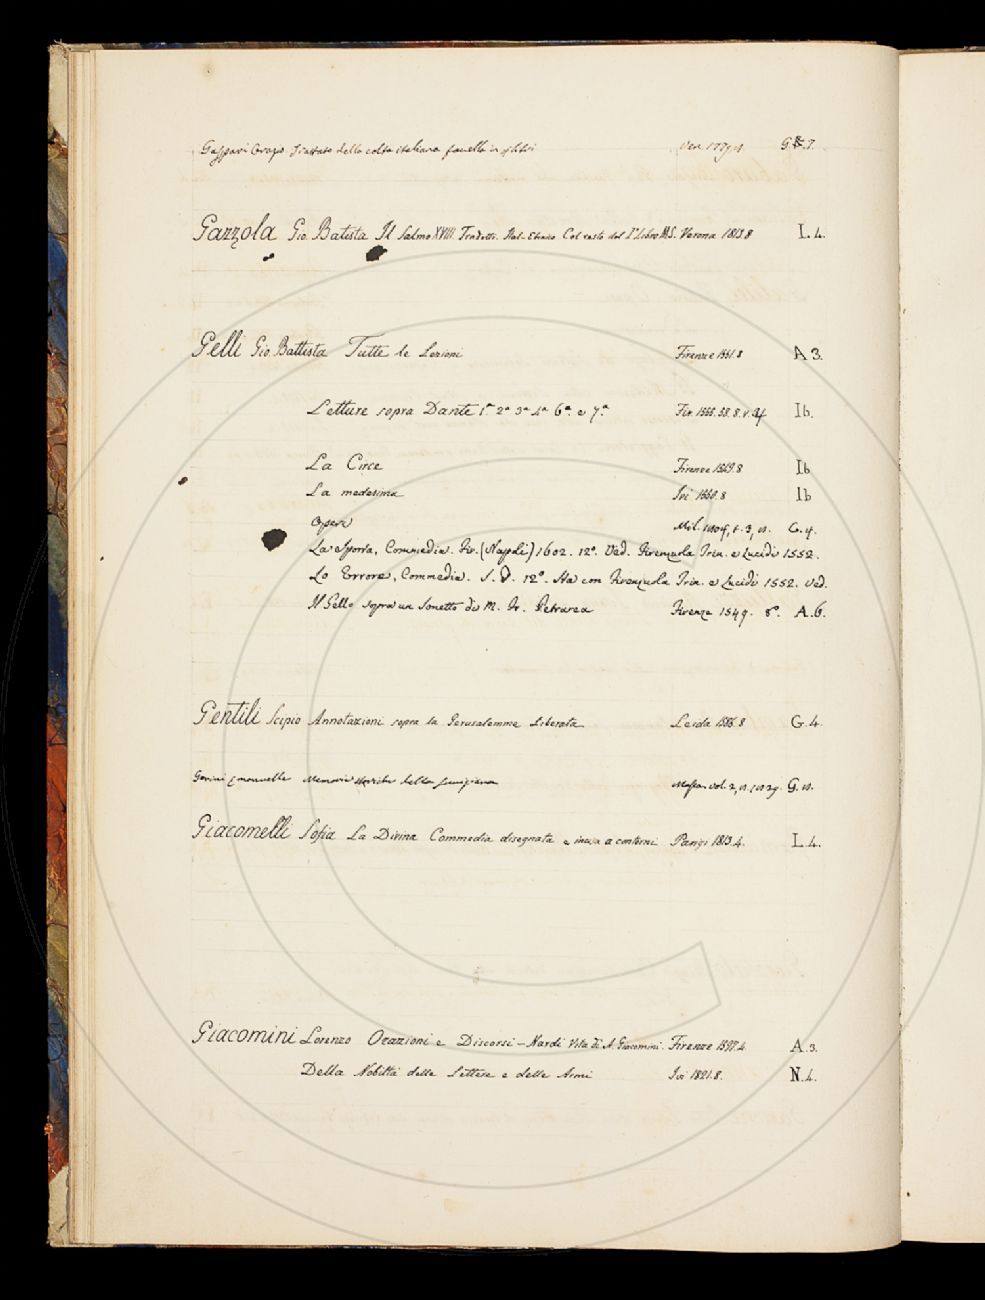 Gaspari Trattato della colta italiana favella in Ven.
Gazzola Gio. Batista Il Salmo XVIII Tradott. Ital. Ebraico Col resto del I° Libro M.S. Verona 1813.8 L.4.
Gelli Gio. Battista Tutte le Lezioni Firenze 1551.8 A 3.
Letture sopra Dante 1ª 2ª 3ª 4ª 6ª e 7ª Fir. Ib.
La Circe Firenze 8 Ib
La medesima Ivi 8 Ib
Opere Mil. 1804, t. 3, G.
La Sporta, Commedia. Fir. (Napoli) 1602. 12°. Ved. Firenzuola Trin. e Lucidi 1552.
Lo Errore, Commedia. 12°. Sta con Firenzuola Trin. e Lucidi 1552. Ved.
Il Gello sopra un Sonetto di M. Fr. Petrarca Firenze 1549. 8°. A.6.
Gentili Scipio Annotazioni sopra la Gerusalemme Liberata Leida 1586.8 G.4.
Gerini Emanuelle Memorie Storiche della Lunigiana Massa vol. 2, G.
Giacomelli Sofia La Divina Commedia disegnata e incisa a contorni Parigi 1813.4. L.4.
Giacomini Lorenzo Orazioni e Discorsi – Nardi Vita di A. Giacomini. Firenze 1597.4 A.3.
Della Nobiltà delle Lettere e delle Armi Ivi 1821.8. N.4.